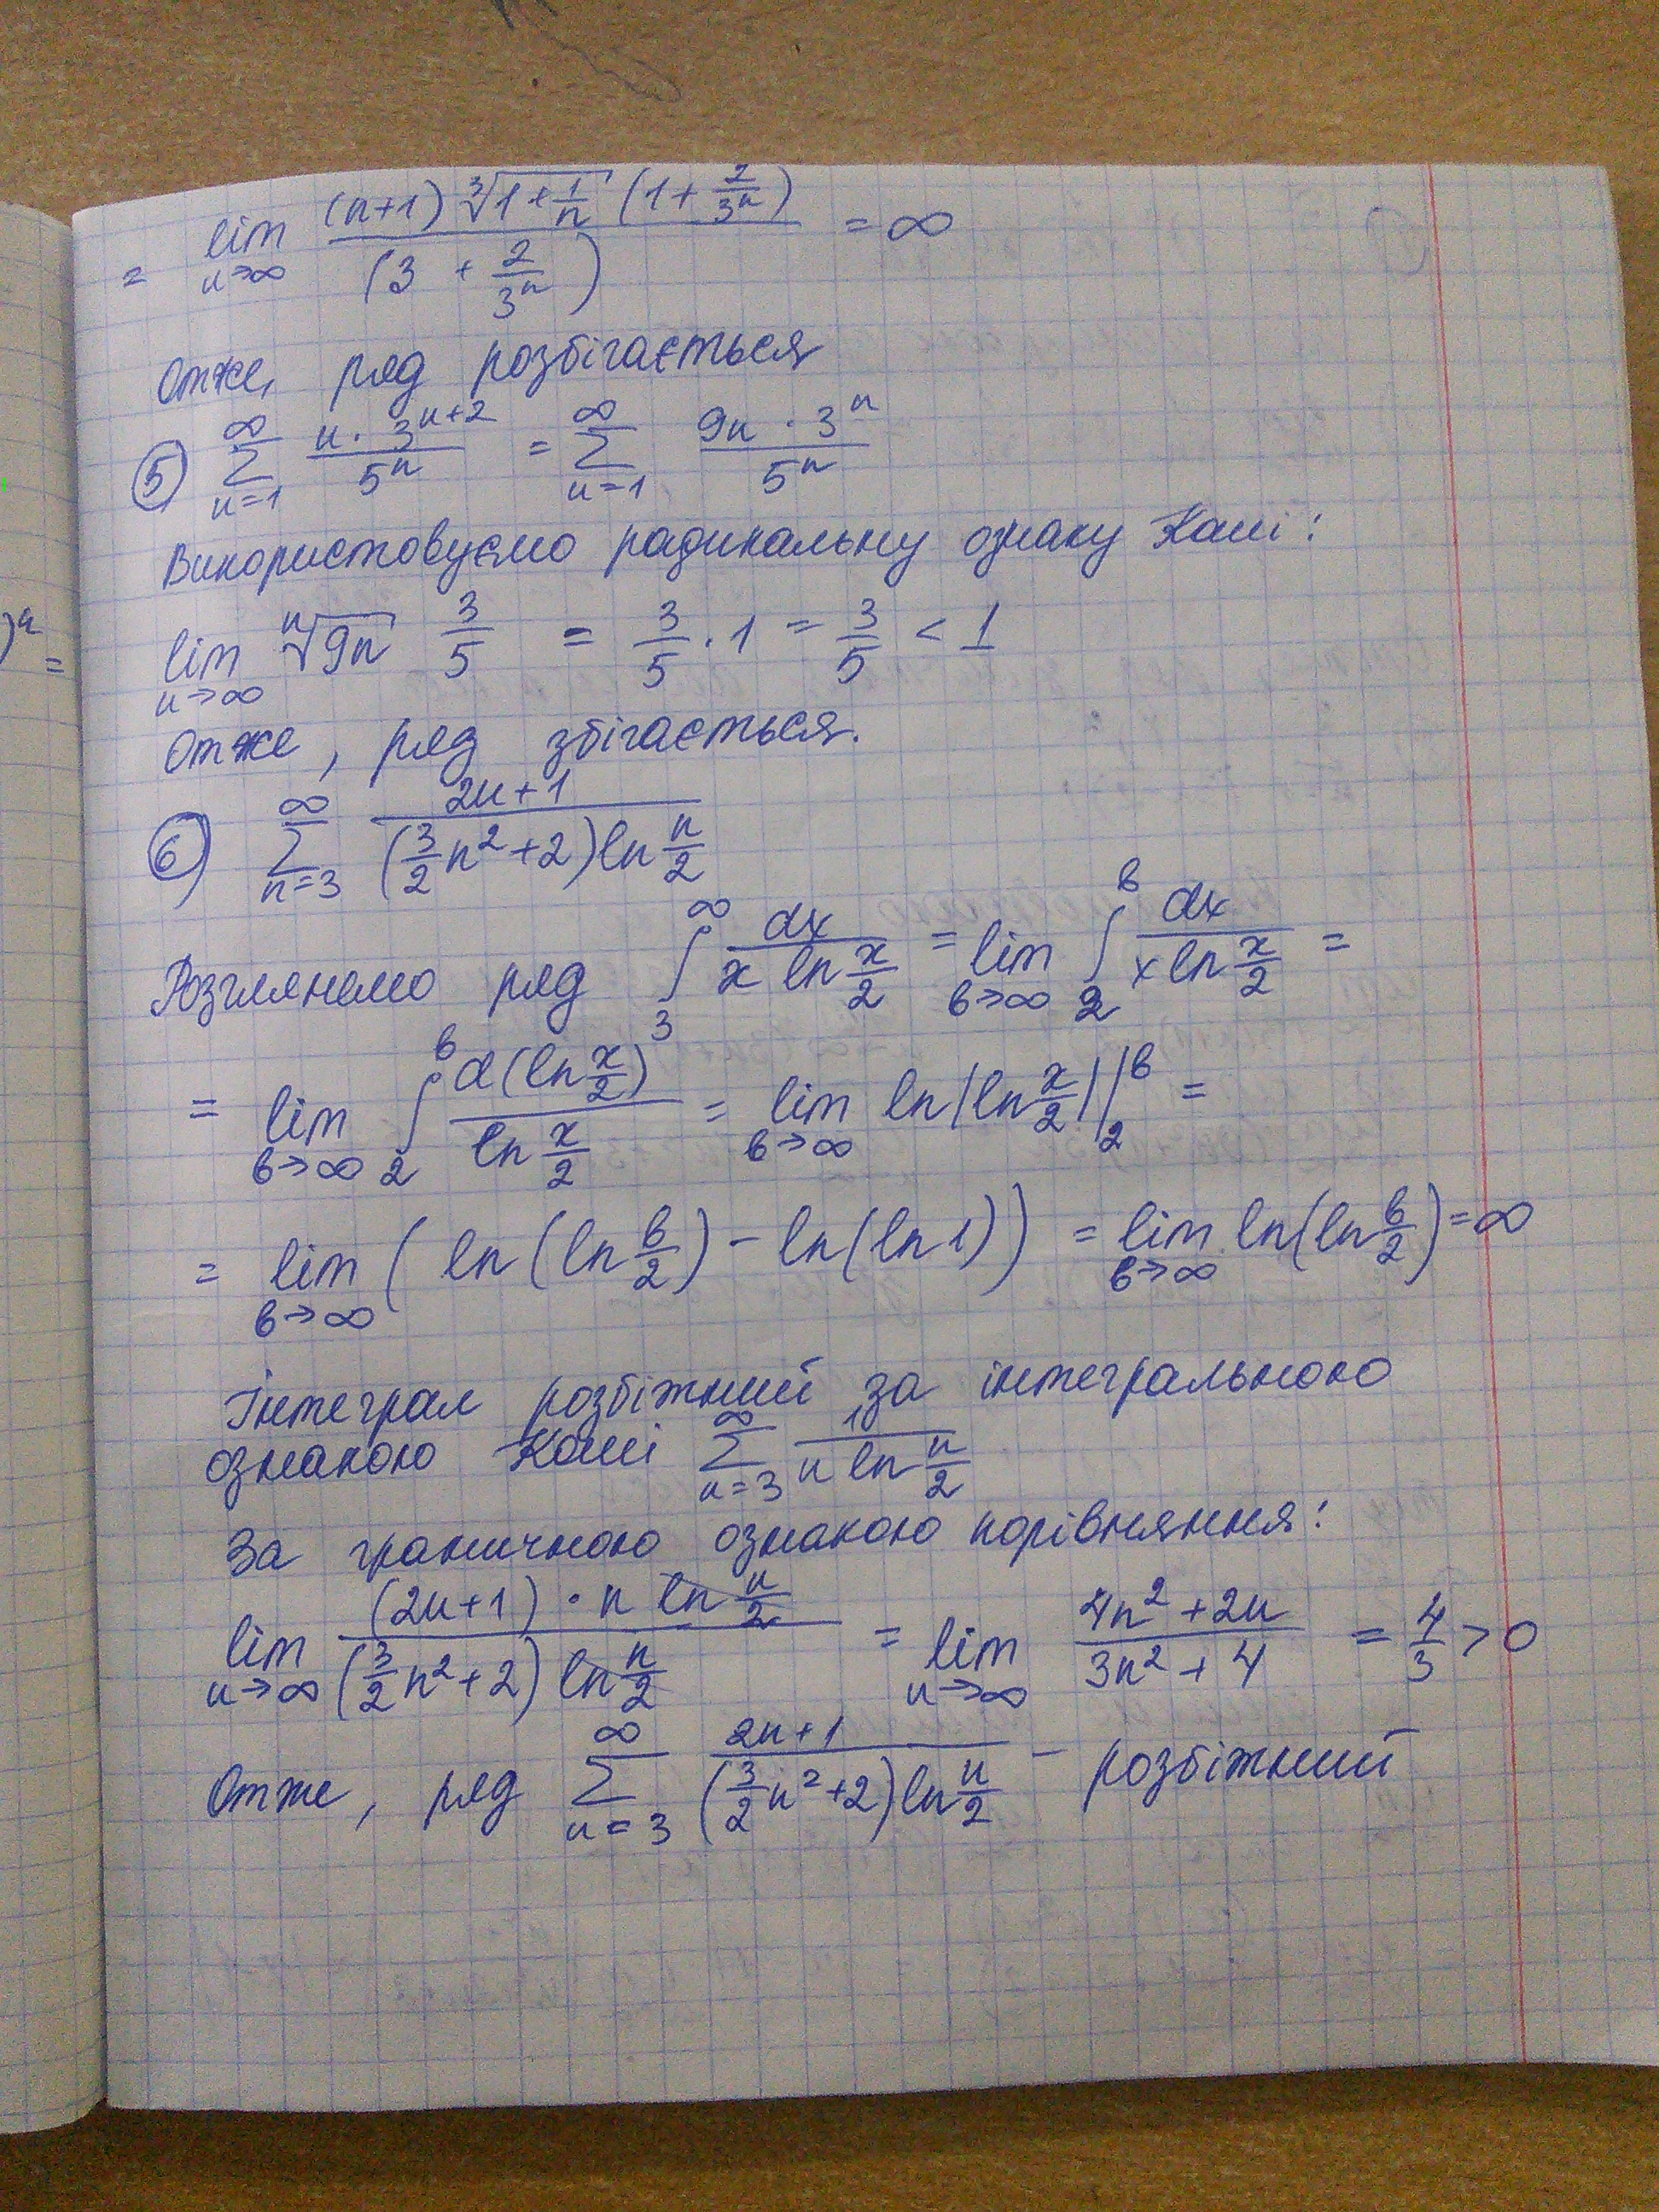 = lim n→∞ (n+1) ∛(1+1/n) (1+2/3ⁿ) / (3 + 2/3ⁿ) = ∞
Отже, ряд розбігається
5) ∞ Σ n=1 n·3ⁿ⁺² / 5ⁿ = ∞ Σ n=1 9n·3ⁿ / 5ⁿ
Використовуємо радикальну ознаку Коші:
lim n→∞ ⁿ√9n 3/5 = 3/5 · 1 = 3/5 < 1
Отже, ряд збігається.
6) ∞ Σ n=3 2n+1 / (3/2 n²+2) ln n/2
Розглянемо ряд ∫₃^∞ dx / x ln x/2 = lim в→∞ ∫₂^в dx / x ln x/2 =
= lim в→∞ ∫₂^в d(ln x/2) / ln x/2 = lim в→∞ ln|ln x/2| |₂^в =
= lim в→∞ ( ln(ln в/2) - ln(ln 1)) = lim в→∞ ln(ln в/2) = ∞
Інтеграл розбіжний за інтегральною
ознакою Коші ∞ Σ n=3 1 / n ln n/2
За граничною ознакою порівняння:
lim n→∞ (2n+1)·n ln n/2 / (3/2 n²+2) ln n/2 = lim n→∞ 4n²+2n / 3n²+4 = 4/3 > 0
Отже, ряд ∞ Σ n=3 2n+1 / (3/2 n²+2) ln n/2 - розбіжний
)ⁿ
=